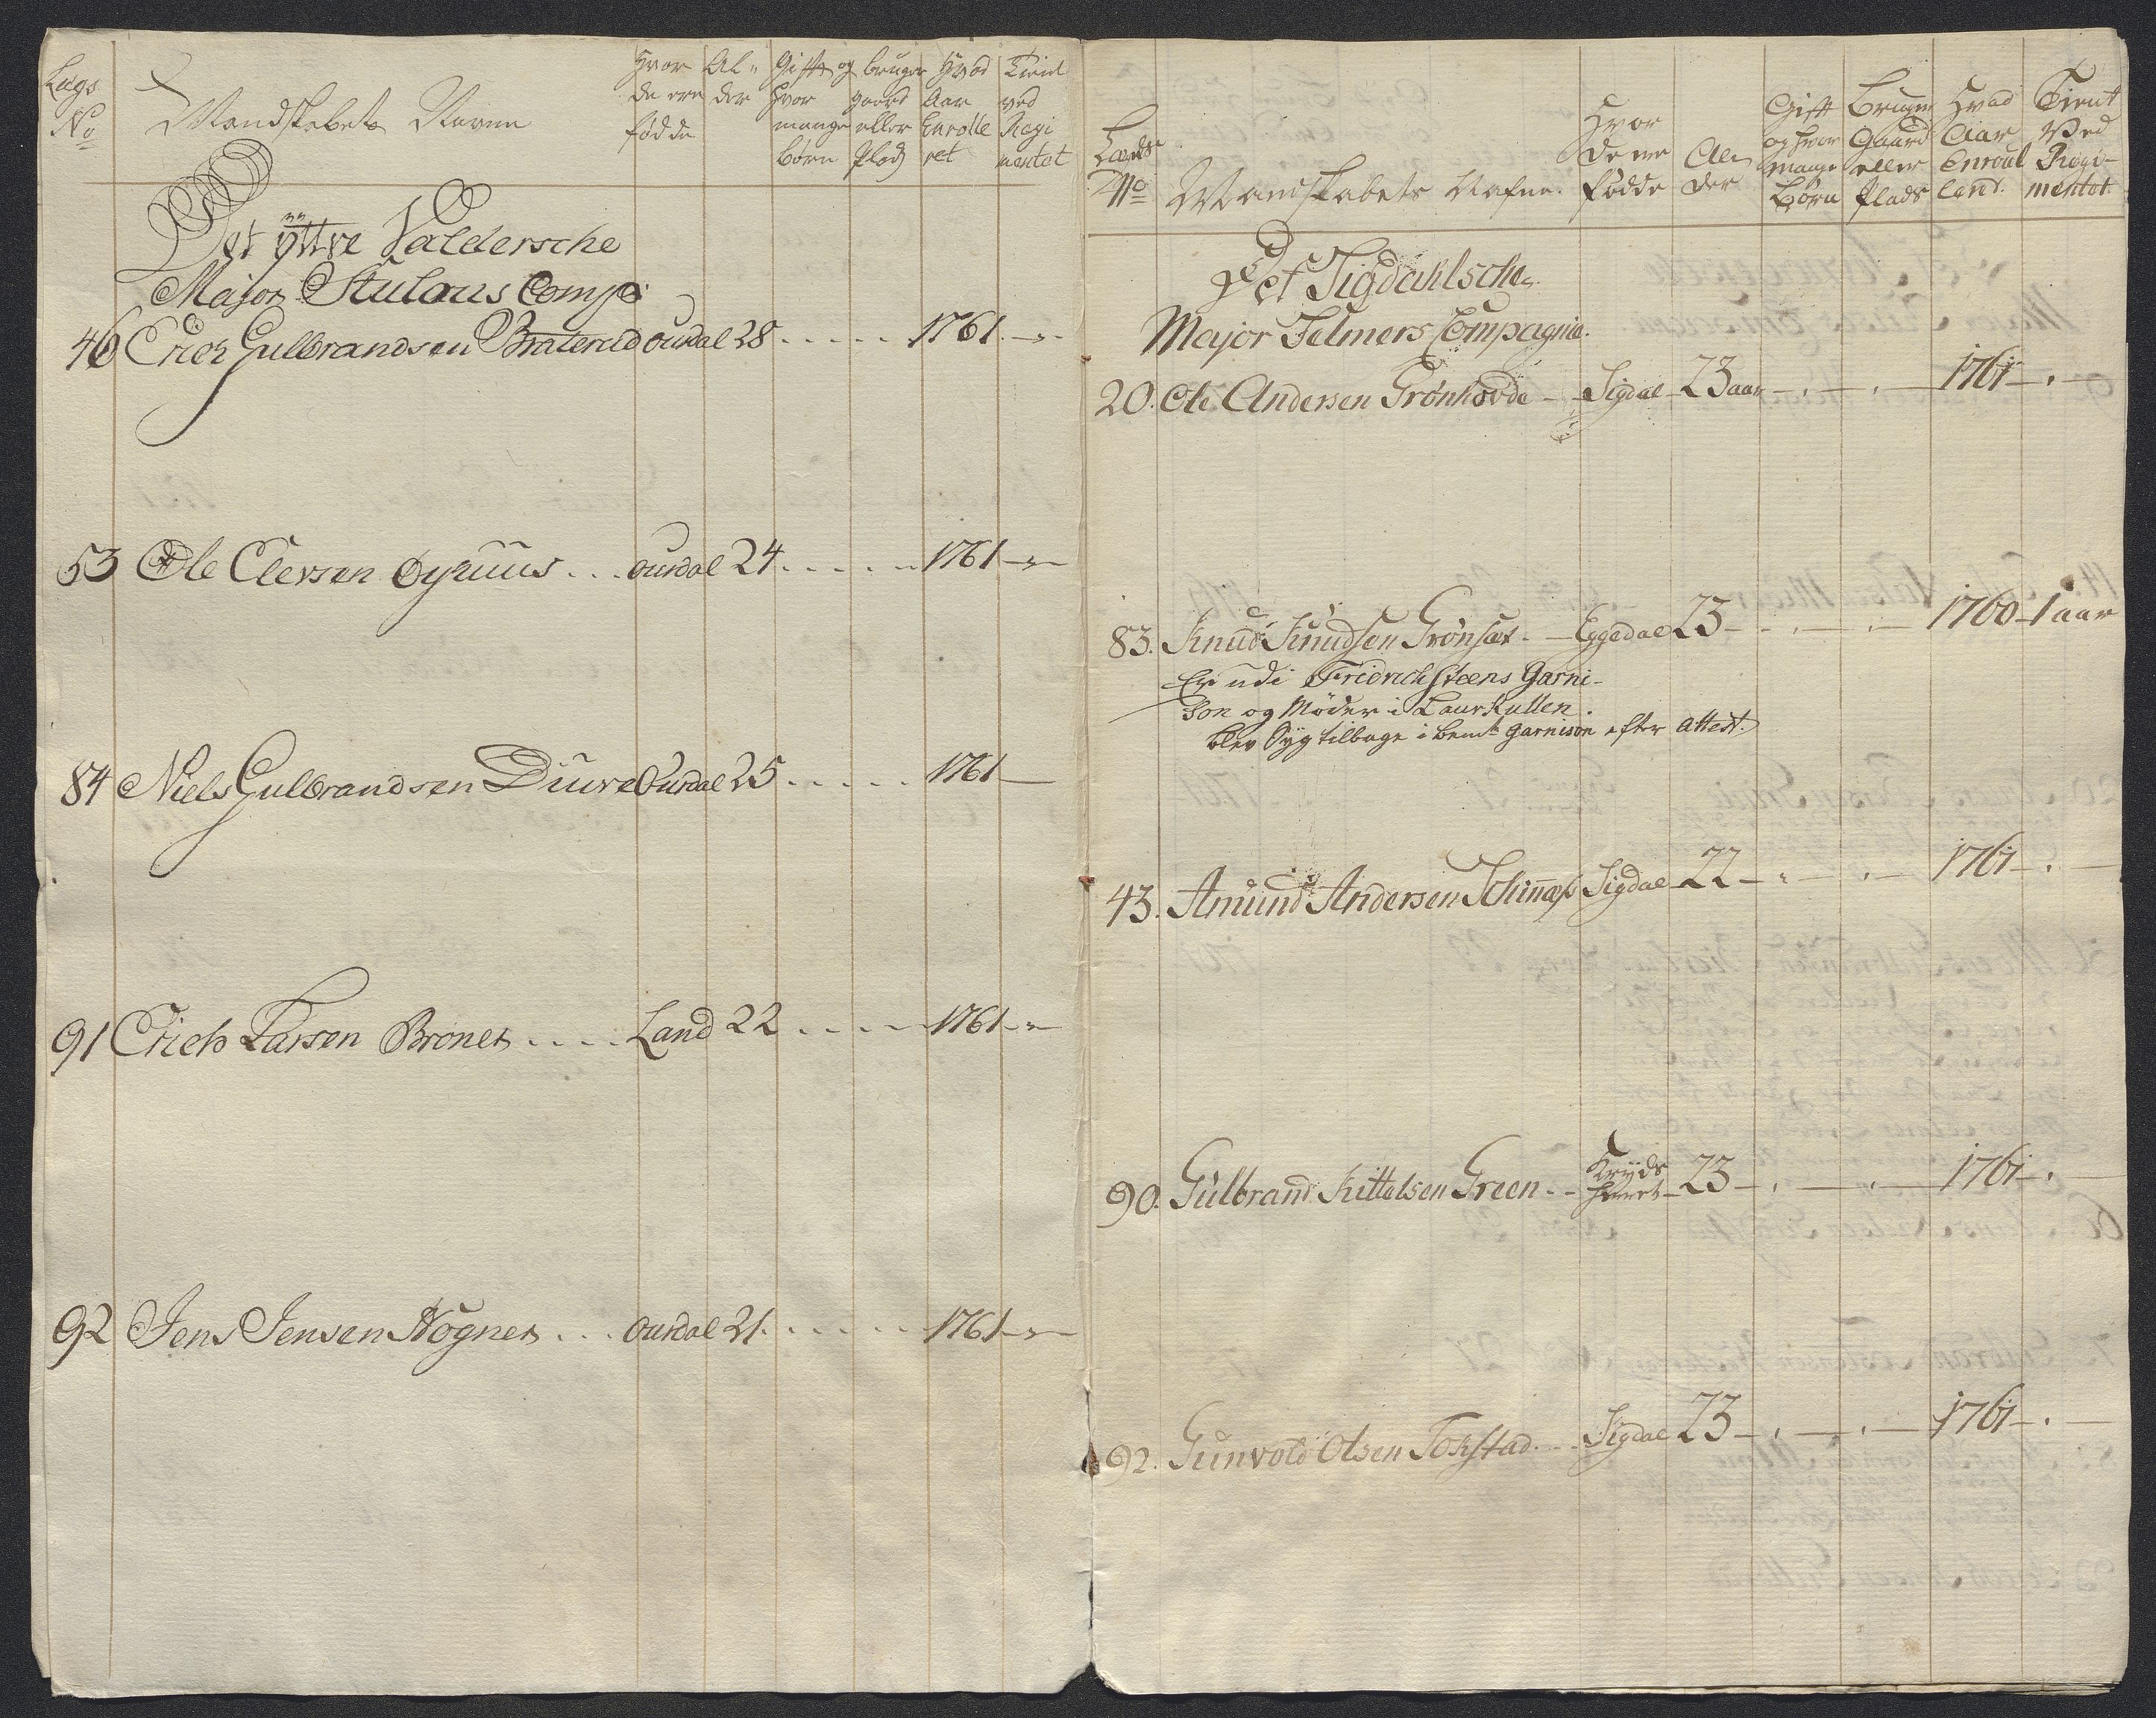 Lægs No
Mandskabets Navne
Hvor de ere fødde
Al- der
Gift og hvor mange børn
bruger gaard eller Plads
Hvad Aar Enrolleret
Tient ved Regimentet
Det ÿttre Valdersche
Major Stulous Comp:
46 Erich Gulbrandsen Braterud ourdal 28 - - - - - 1761 - „ -
53 Ole Clersen Øynuus . . . ourdal 24 . - - - - 1761 - „ -
84 Niels Gulbrandsen Diuve Ourdal 25 . - - - - 1761 -
91 Erich Larsen Brones . . . . Land 22 . . - - 1761 - „ -
92 Jens Jensen Høgnes . . . Ourdal 21 . - - - - 1761 - „ -
Lands No
Mandskabets Nafne.
Hvor de ere fødde
Al- der
Gift og hvor mange Børn
Bruger Gaard eller Plads
Hvad Aar Enroulleret.
Tient Ved Regi- mentet.
Det Sigdahlsche
Major Felmers Compagnie.
20. Ole Andersen Grønhovde - Sigdal - 23 aar - . - . - 1761 - . -
83. Knud Knudsen Grønsæt - Eggedal 23 - - . - . - 1760 - 1 aar
Er udi Fridrichsteens Garni-
son og Møder i Laurkullen.
blev Syg tilbage i bemte Garnison efter Attest.
43. Amund Andersen Schinnæs Sigdal 22 - . - . - 1761 - . -
90. Gulbrand Kittelsen Green - - Kryds Herret - 23 - . - . - 1761 - . -
92. Gunvold Olsen Tokstad - - Sigdal 23 - . - . - 1761 - . -